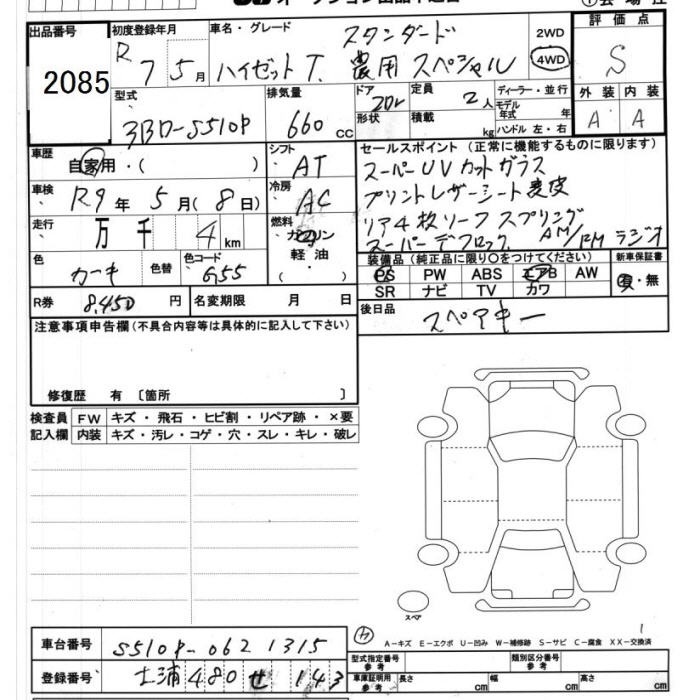 出品番号 2085
初度登録年月 R7 5月
車名・グレード スタンダード
ハイゼットT. 農用スペシャル
2WD
4WD
評価点 S
外装 内装
A A
型式 3BD-S510P
排気量 660 cc
ドア 2Dr
形状
定員 2人
積載 kg
ディーラー・並行
モデル年式 年
ハンドル 左・右
車歴 自家用・( )
シフト AT
車検 R9年 5月(8日)
冷房 AC
走行 万 千 4km
燃料 ガソリン
軽油
色 カーキ 色替
色コード G55
R券 8,450円 名変期限 月 日
セールスポイント(正常に機能するものに限ります)
スーパーUVカットガラス
プリントレザーシート表皮
リア4枚リーフスプリング
スーパーデフロック AM/FMラジオ
装備品(純正品に限り○をつけてください) 新車保証書
PS PW ABS エアB AW 有・無
SR ナビ TV カワ
後日品 スペアキー
注意事項申告欄(不具合内容等は具体的に記入して下さい)
修復歴 有 〔箇所 〕
検査員 FW キズ・飛石・ヒビ割・リペア跡・×要
記入欄 内装 キズ・汚レ・コゲ・穴・スレ・キレ・破レ
スペア
A-キズ E-エクボ U-凹み W-補修跡 S-サビ C-腐食 XX-交換済
車台番号 S510P-0621315
登録番号 土浦 480 せ 143
型式指定番号 参考 類別区分番号 参考
車庫証明用 参考 長さ cm 幅 cm 高さ cm